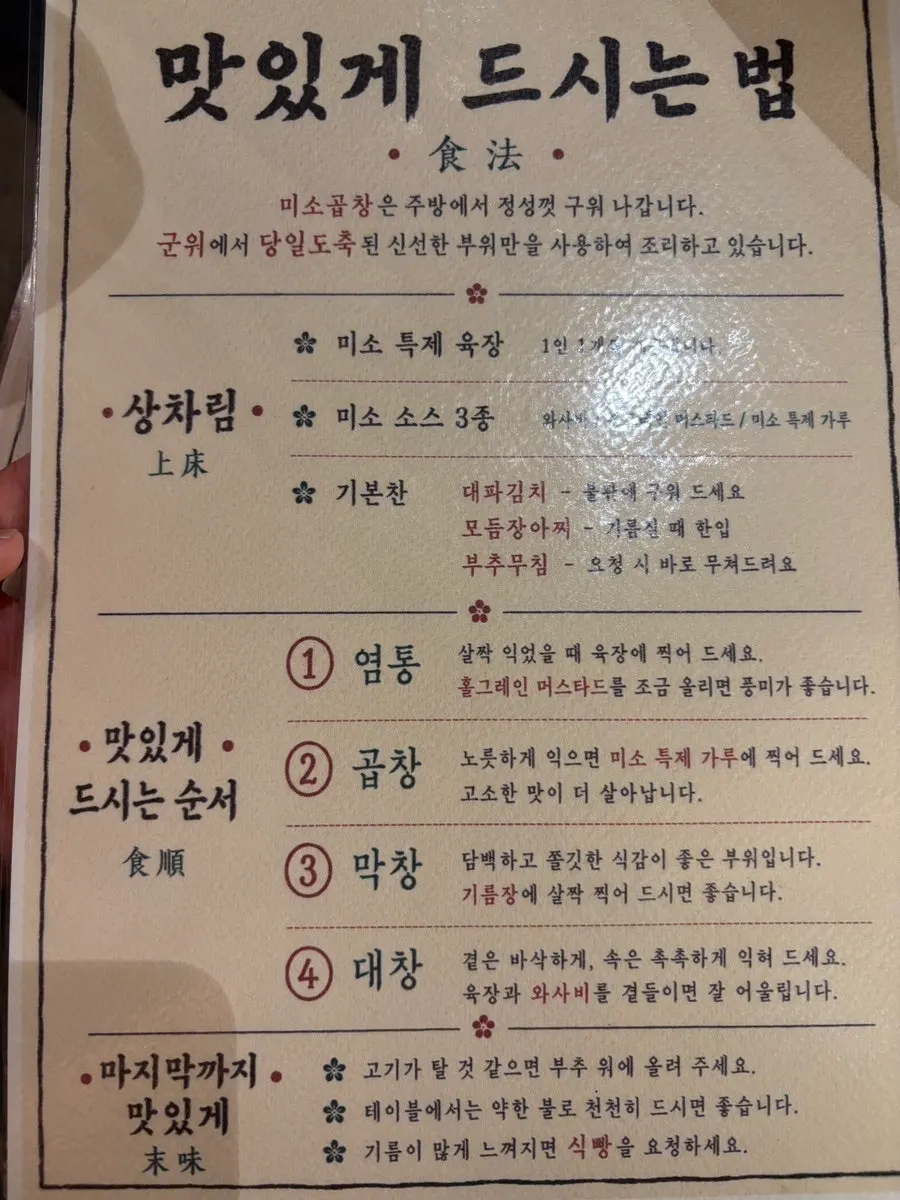 맛있게 드시는 법
• 食法 •
미소곱창은 주방에서 정성껏 구워 나갑니다.
군위에서 당일도축된 신선한 부위만을 사용하여 조리하고 있습니다.
• 상차림 •
上床
미소 특제 육장 1인 1개
미소 소스 3종 와사비 / 머스타드 / 미소 특제 가루
기본찬 대파김치 - 불판에 구워 드세요
모듬장아찌 - 기름질 때 한입
부추무침 - 요청 시 바로 무쳐드려요
• 맛있게 •
드시는 순서
食順
① 염통 살짝 익었을 때 육장에 찍어 드세요.
홀그레인 머스타드를 조금 올리면 풍미가 좋습니다.
② 곱창 노릇하게 익으면 미소 특제 가루에 찍어 드세요.
고소한 맛이 더 살아납니다.
③ 막창 담백하고 쫄깃한 식감이 좋은 부위입니다.
기름장에 살짝 찍어 드시면 좋습니다.
④ 대창 겉은 바삭하게, 속은 촉촉하게 익혀 드세요.
육장과 와사비를 곁들이면 잘 어울립니다.
• 마지막까지 •
맛있게
末味
고기가 탈 것 같으면 부추 위에 올려 주세요.
테이블에서는 약한 불로 천천히 드시면 좋습니다.
기름이 많게 느껴지면 식빵을 요청하세요.